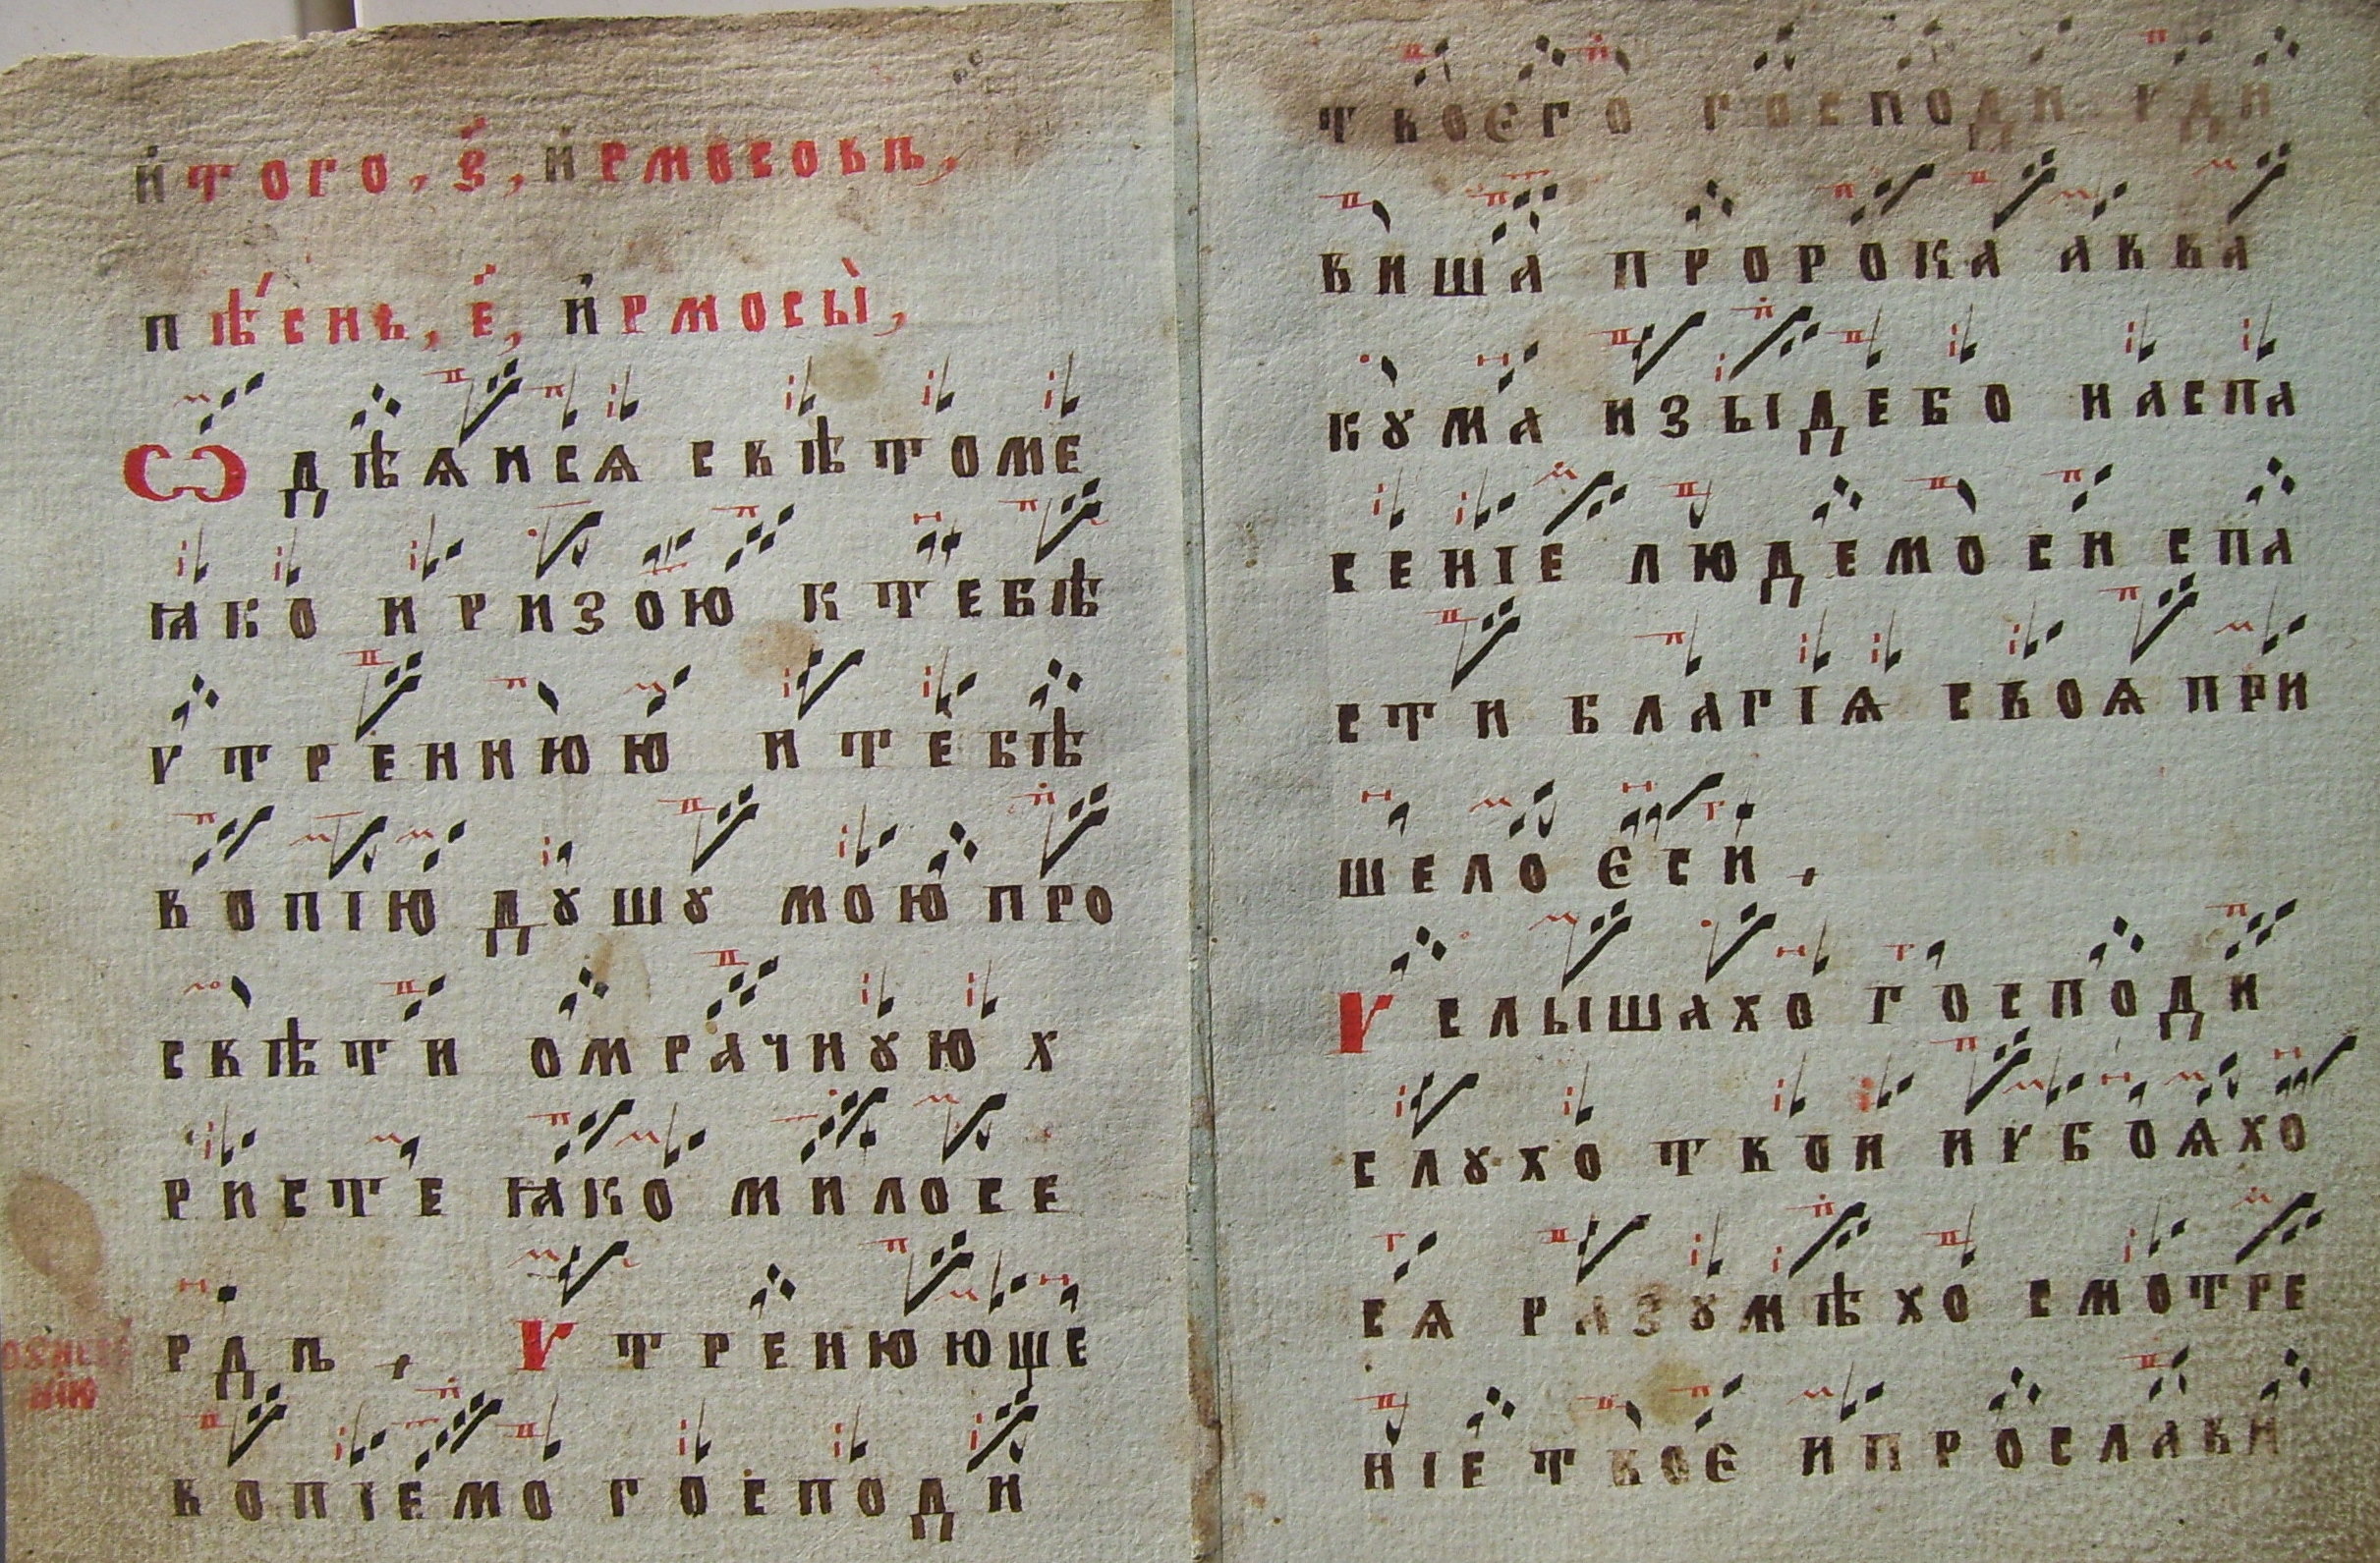 и҆того, ѕ҃, и҆рмосовъ,
пѣ́снь, е҃, и҆рмосы̀,
Ѡдѣѧисѧ свѣтоме
ꙗко иризою ктебѣ
ѵтреннюю итебѣ
вопїю дꙋшꙋ мою про
свѣти омрачнꙋю х
ристе ꙗко милосе
рдъ, Ѵтренююще
вопїемо господи
твоєго господи
виша пророка авва
кꙋма изыдебо наспа
сенїе людемоси спа
сти благїѧ своѧ при
шело єси,
Ѵслышахо господи
слꙋхо твои иѵбоѧхо
сѧ разꙋмѣхо смотре
нїе твоє ипрослави